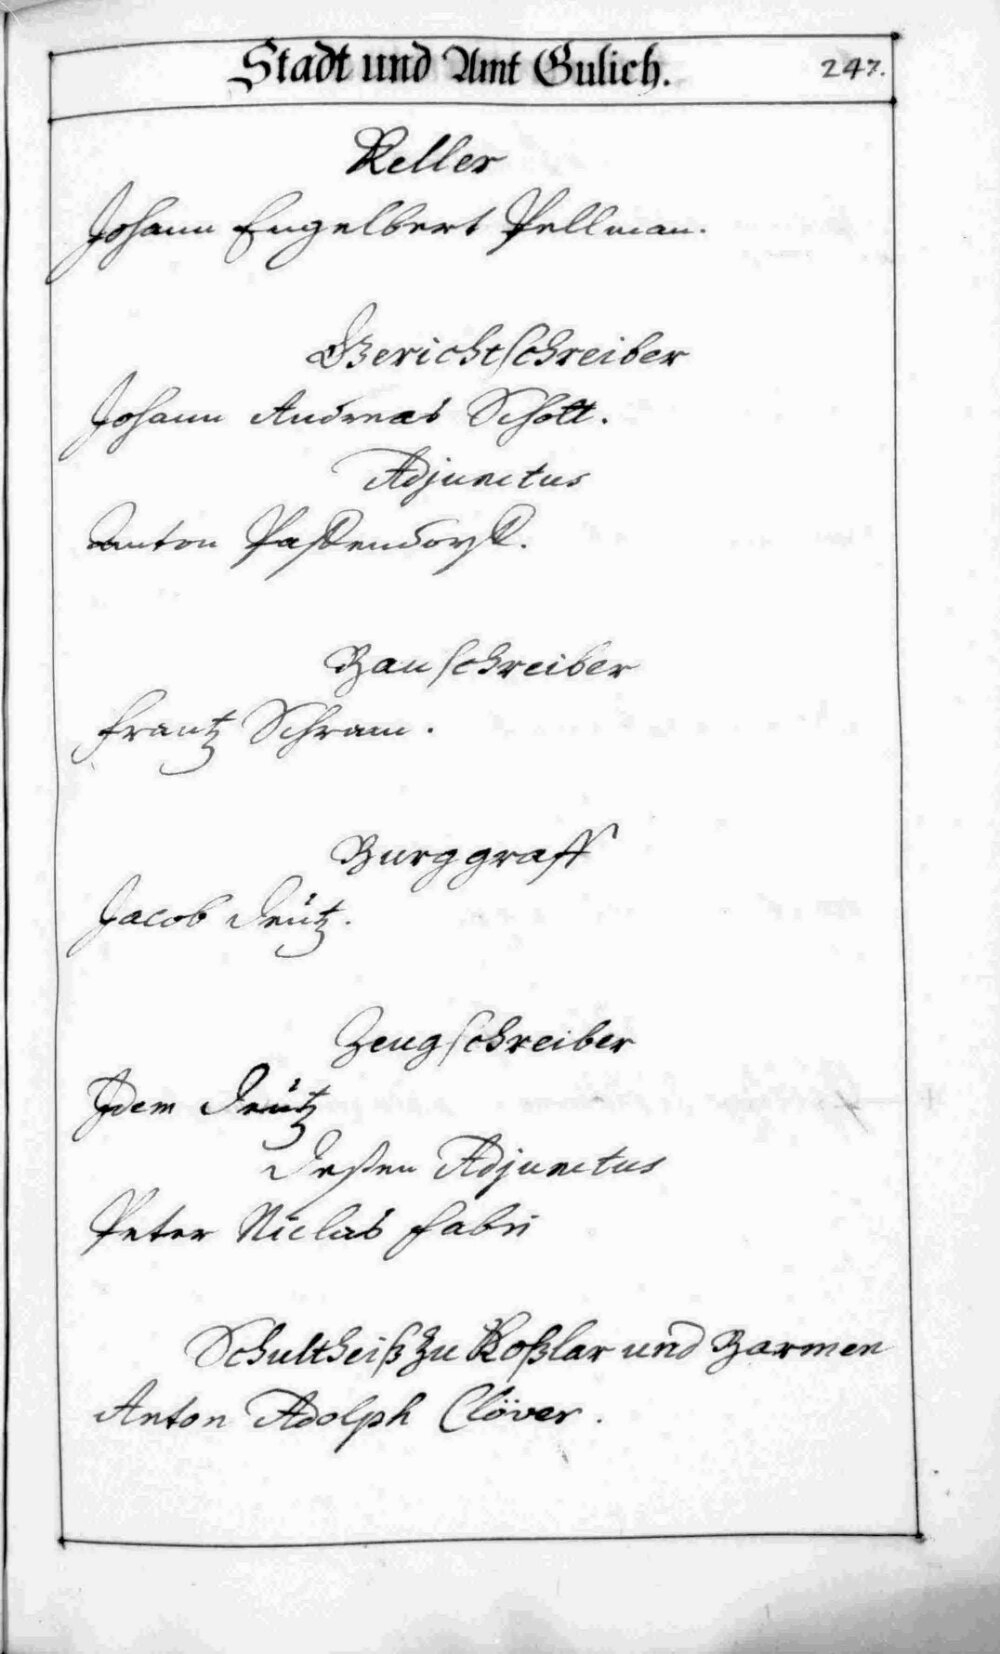 Stadt und Amt Gulich.
247.
Keller
Johann Engelbert Pellman.
Gerichtschreiber
Johann Andreas Schott.
Adjunctus
Anton
Bauschreiber
Frantz Schram.
Burggraff
Jacob Deütz.
Zeugschreiber
Idem Deütz
Deßen Adjunctus
Peter Niclas Fabri
Schultheiß Zu Koßlar und Barmen
Anton Adolph Clöver.